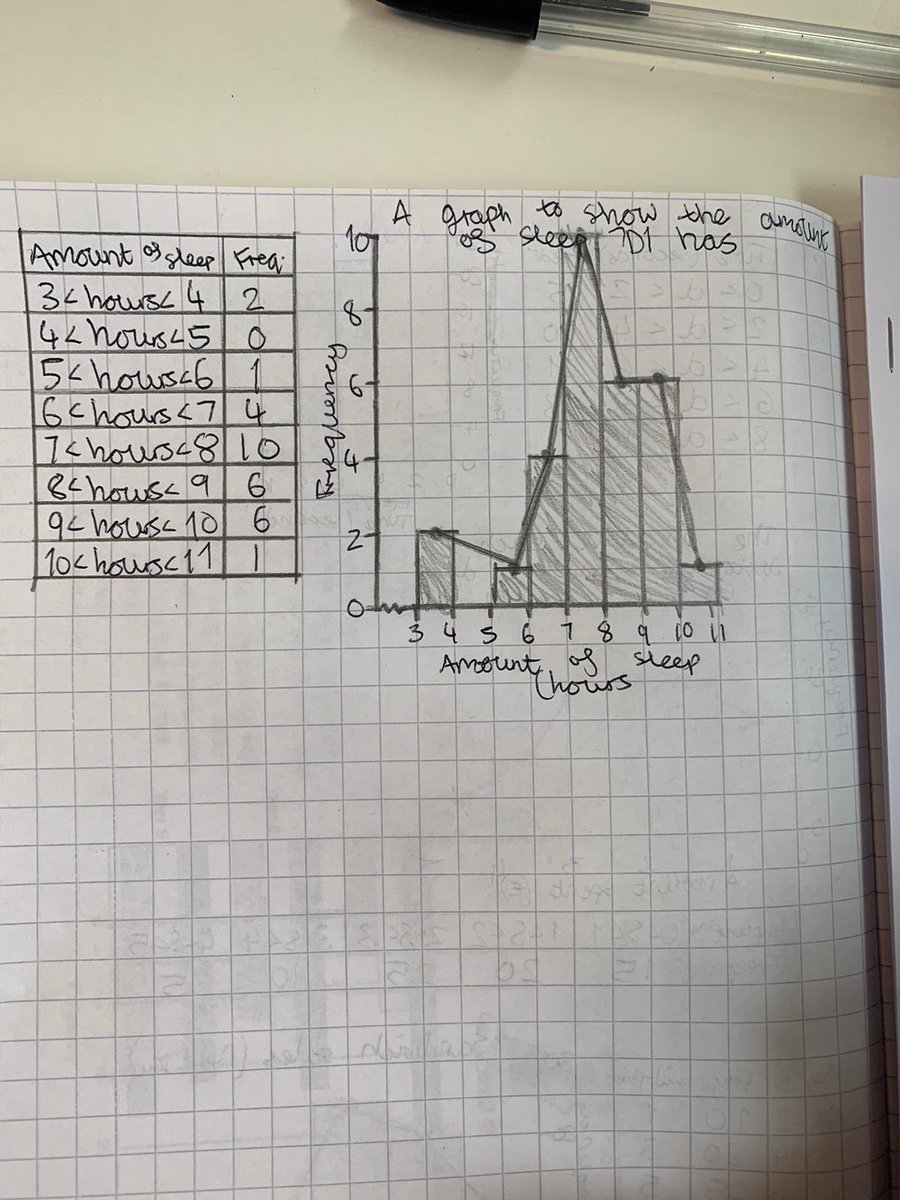 A graph to show the amount
of sleep 7D1 has
Amount of sleep Freq.
3<hours<4 2
4<hours<5 0
5<hours<6 1
6<hours<7 4
7<hours<8 10
8<hours<9 6
9<hours<10 6
10<hours<11 1
Frequency
10
8
6
4
2
0
3 4 5 6 7 8 9 10 11
Amount of sleep
(hours